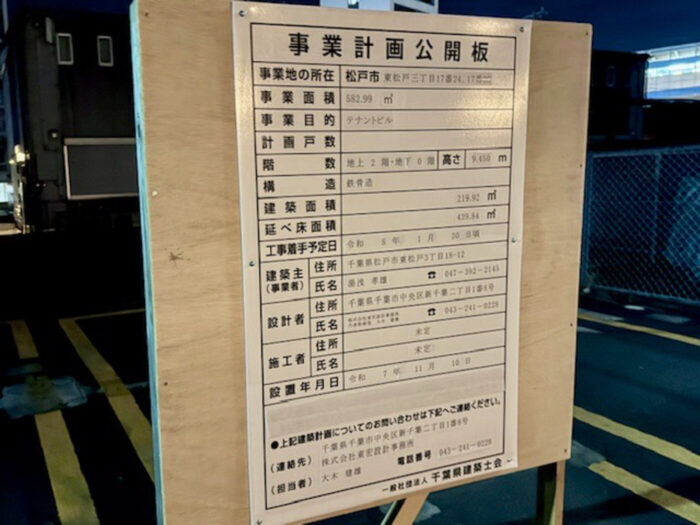 事業計画公開板
事業地の所在 松戸市 東松戸三丁目17番24、17番
事業面積 582.99 ㎡
事業目的 テナントビル
計画戸数
階数 地上 2 階・地下 0 階 高さ 9.450 m
構造 鉄骨造
建築面積 219.92 ㎡
延べ床面積 439.84 ㎡
工事着手予定日 令和 8 年 1 月 30 日頃
建築主(事業者) 住所 千葉県松戸市東松戸3丁目18-12
氏名 湯浅 孝雄 ☎ 047-392-2145
設計者 住所 千葉県千葉市中央区新千葉二丁目1番8号
氏名 株式会社東宏設計事務所 代表取締役 大木 健雄 ☎ 043-241-0228
施工者 住所 未定
氏名 未定
設置年月日 令和 7 年 11 月 10 日
●上記建築計画についてのお問い合わせは下記へご連絡ください。
千葉県千葉市中央区新千葉二丁目1番8号
(連絡先) 株式会社東宏設計事務所
(担当者) 大木 健雄 電話番号 043-241-0228
一般社団法人 千葉県建築士会